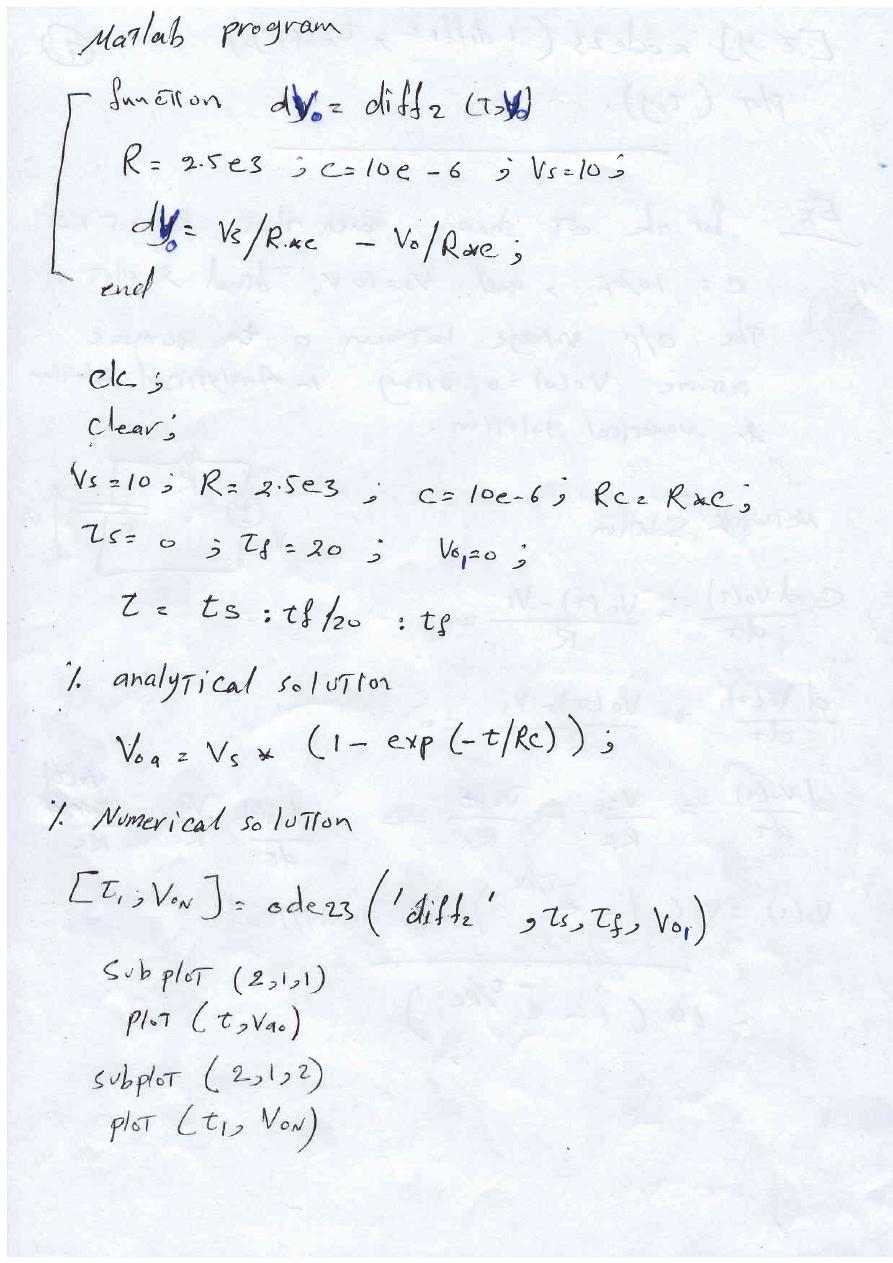 Matlab program
function dVo = diff2 (t,Vo)
R = 2.5e3 ; c = 10e-6 ; Vs=10;
dVo = Vs/R*c - Vo/R*c ;
end
clc ;
clear;
Vs=10 ; R= 2.5e3 ; c= 10e-6 ; Rc= R*c ;
ts= 0 ; tf = 20 ; Vo1=0 ;
t = ts : tf/20 : tf
% analytical solution
Voa = Vs * (1- exp (-t/Rc)) ;
% Numerical solution
[t1 ; VON] = ode23 ('diff2' , ts, tf, Vo1)
Subplot (2,1,1)
plot (t, Vao)
subplot (2,1,2)
plot (t1, VON)